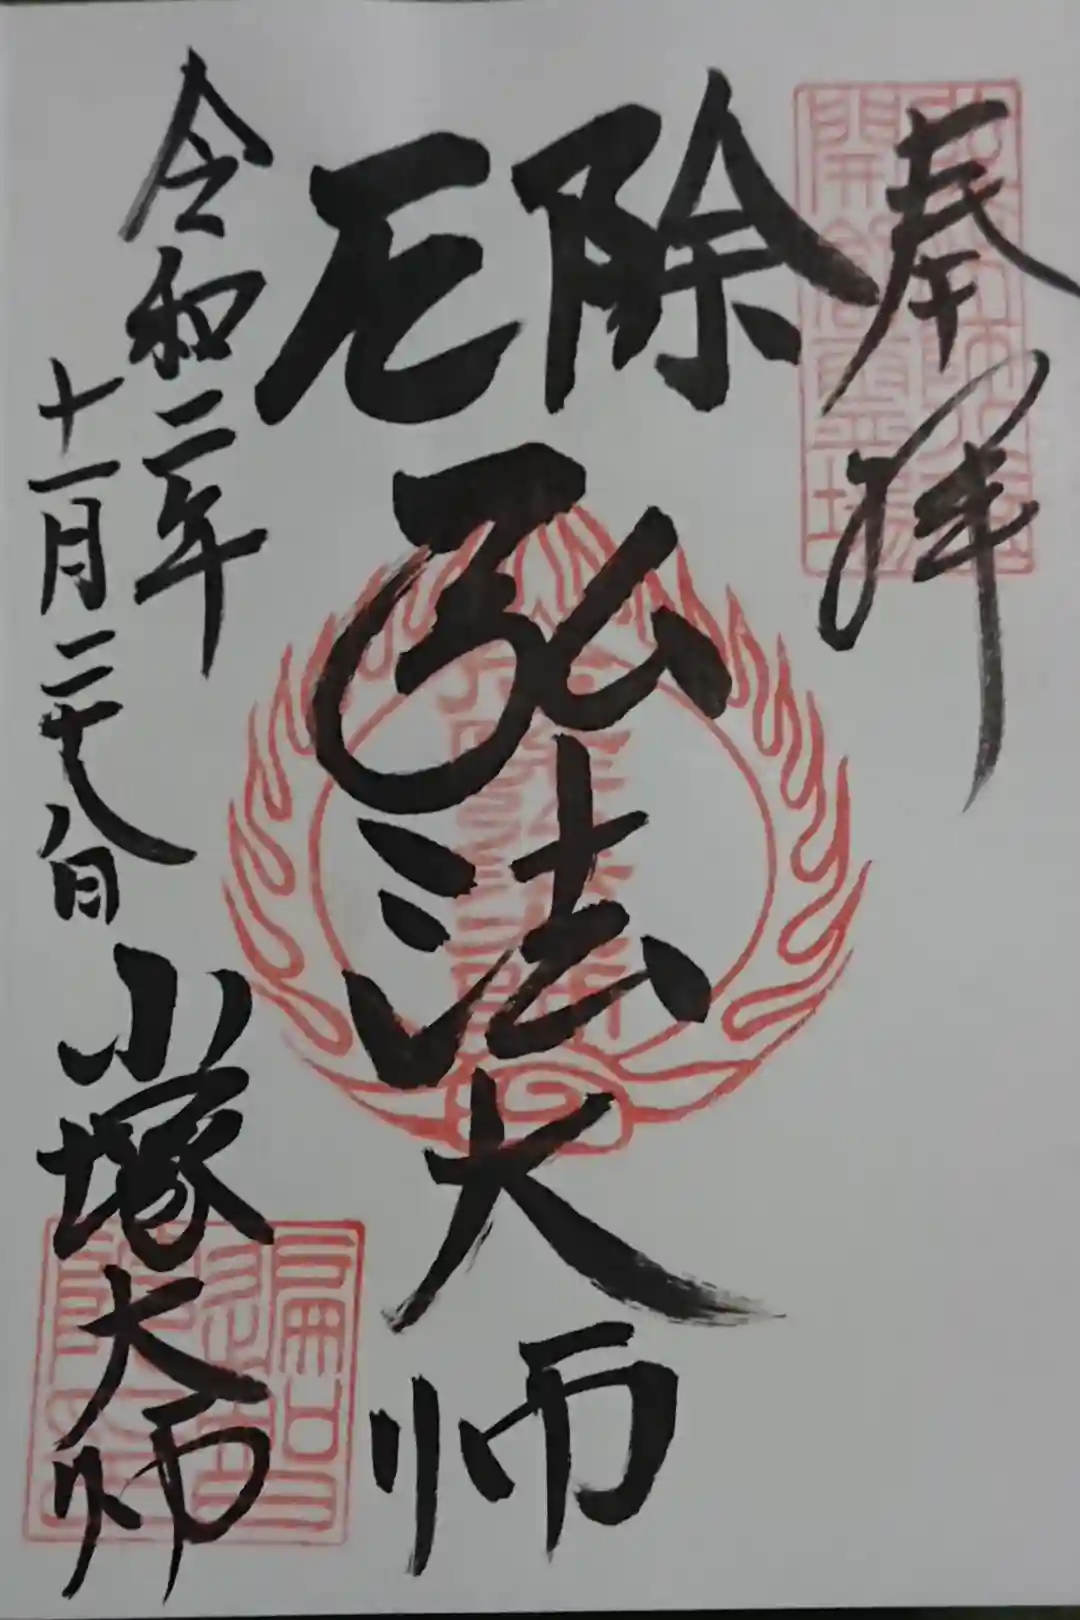 奉拝
除厄
弘法大师
令和二年
十一月二十八日
小塚大师